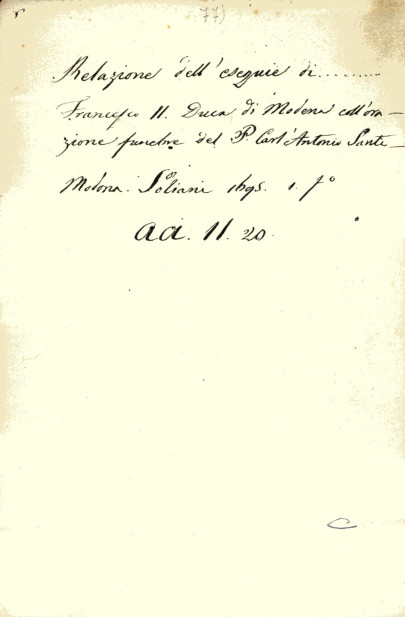 77)
Relazione dell'esequie di..........
Francesco II. Duca di Modena coll'ora–
zione funebre del P. Carl'Antonio Santi–
Modona. Soliani 1695. 1. fo
aa. 11. 20.